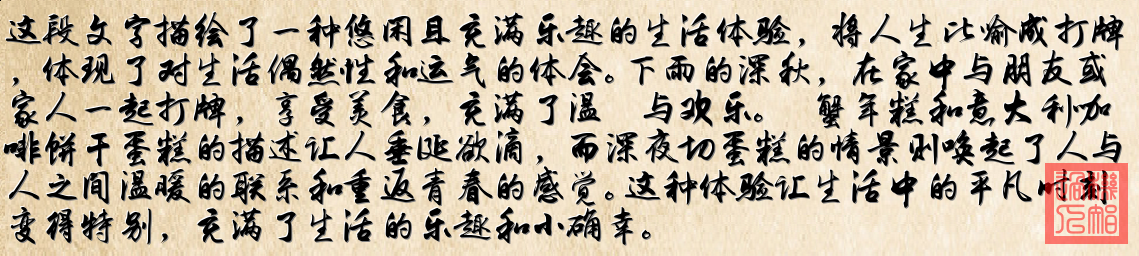 这段文字描绘了一种悠闲且充满乐趣的生活体验，将人生比喻成打牌
，体现了对生活偶然性和运气的体会。下雨的深秋，在家中与朋友或
家人一起打牌，享受美食，充满了温 与欢乐。 蟹年糕和意大利咖
啡饼干蛋糕的描述让人垂涎欲滴，而深夜切蛋糕的情景则唤起了人与
人之间温暖的联系和重返青春的感觉。这种体验让生活中的平凡时刻
变得特别，充满了生活的乐趣和小确幸。